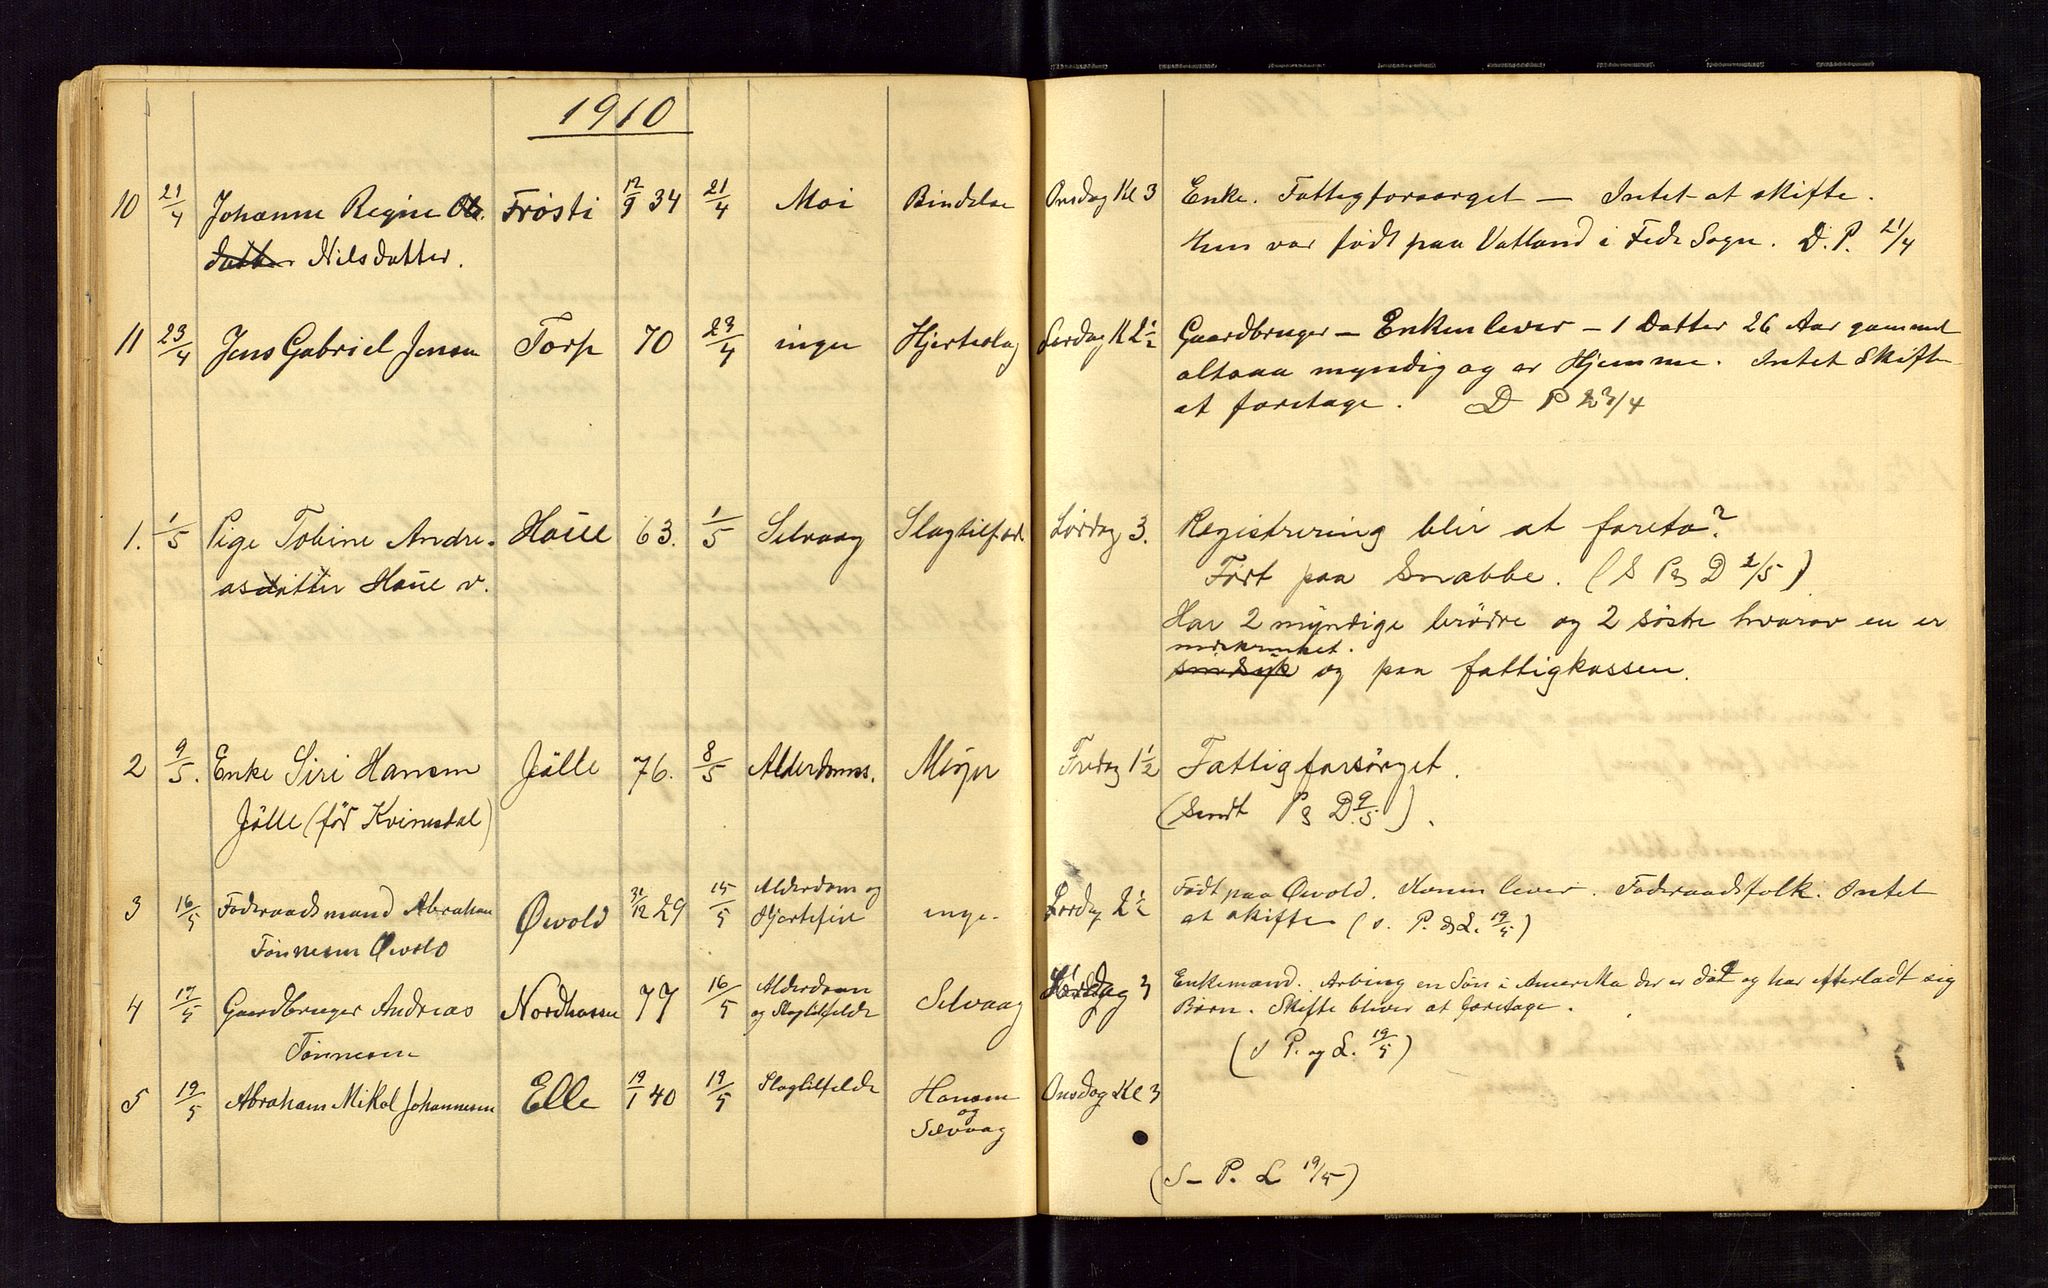 1910
10 21/4 Johanne Regine Frösti 12/9 34 21/4 Moi Bindelse Onsdag Kl 3 Enke. Fattigforsørget — Intet at skifte.
datter Nilsdatter. Hun var født paa Vatland i Fede Sogn. D. P. 21/4
11 23/4 Jens Gabriel Jensen Torp 70 23/4 ingen Hjerteslag Lørdag Kl 2 1/2 Gaardbruger — Enken lever — 1 Datter 26 Aar gammel
altsaa myndig og er Hjemme. Intet Skifte
at foretage. D P 23/4
1. 1/5 Pige Tobine Andre- Haüe 63. 1/5 Selvaag Slagtilfæl. Lørdag 3. Registrering blir at foreta?
asdatter Haüe v. Født paa Snabbe. (S P & D 2/5)
Har 2 myndige brødre og 2 søstre hvorav en er
sindsyk og paa fattigkassen.
2 9/5. Enke Siri Hansen Jölle 76. 8/5 Alderdoms. Meyer Fredag 1 1/2 Fattigforsørget.
Jölle (før Kvinesdal) (Sendt P & D. 9/5).
3 16/5 Føderaadsmand Abraham Øwold 31/12 29 15/5 Alderdom og inge. Lørdag 2 1/2 Født paa Øwold. Konen lever. Føderaadsfolk. Intet
Tønnesen Øwold Hjertefeil at skifte (s. P. & L. 19/5)
4 17/5 Gaardbruger Andreas Nordhassel 77 16/5 Alderdom Selvaag Lørdag 3 Enkemand. Arving en Søn i Amerika der er død og har efterladt sig
Tønnesen og Slagtilfælde Børn. Skifte bliver at foretage.
(s P. og L. 19/5)
5 19/5 Abraham Mikal Johannesen Elle 19/1 40 19/5 Slagtilfælde Hansen Onsdag Kl 3
og
Selvaag
(S – P. L 19/5)